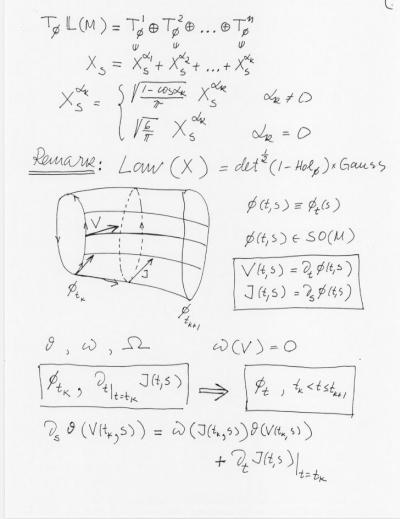 T_ϕ 𝕃(M) = T_ϕ^1 ⊕ T_ϕ^2 ⊕ ... ⊕ T_ϕ^n
X_s = X_s^{α_1} + X_s^{α_2} + ... + X_s^{α_k}
X_s^{α_k} = { √((1-cosα_k)/π) X_s^{α_k} α_k ≠ 0
√(6/π) X_s^{α_k} α_k = 0
Remark: Law (X) = det^{1/2} (1-Hol_ϕ) × Gauss
V J
ϕ_{t_k} ϕ_{t_{k+1}}
ϕ(t,s) ≡ ϕ_t(s)
ϕ(t,s) ∈ SO(M)
V(t,s) = ∂_t ϕ(t,s)
J(t,s) = ∂_s ϕ(t,s)
ϑ , ω , Ω ω(V) = 0
ϕ_{t_k} , ∂_t|_{t=t_k} J(t,s) ⟹ ϕ_t , t_k < t ≤ t_{k+1}
∂_s ϑ(V(t_k,s)) = ω(J(t_k,s)) ϑ(V(t_k,s))
+ ∂_t J(t,s)|_{t=t_k}